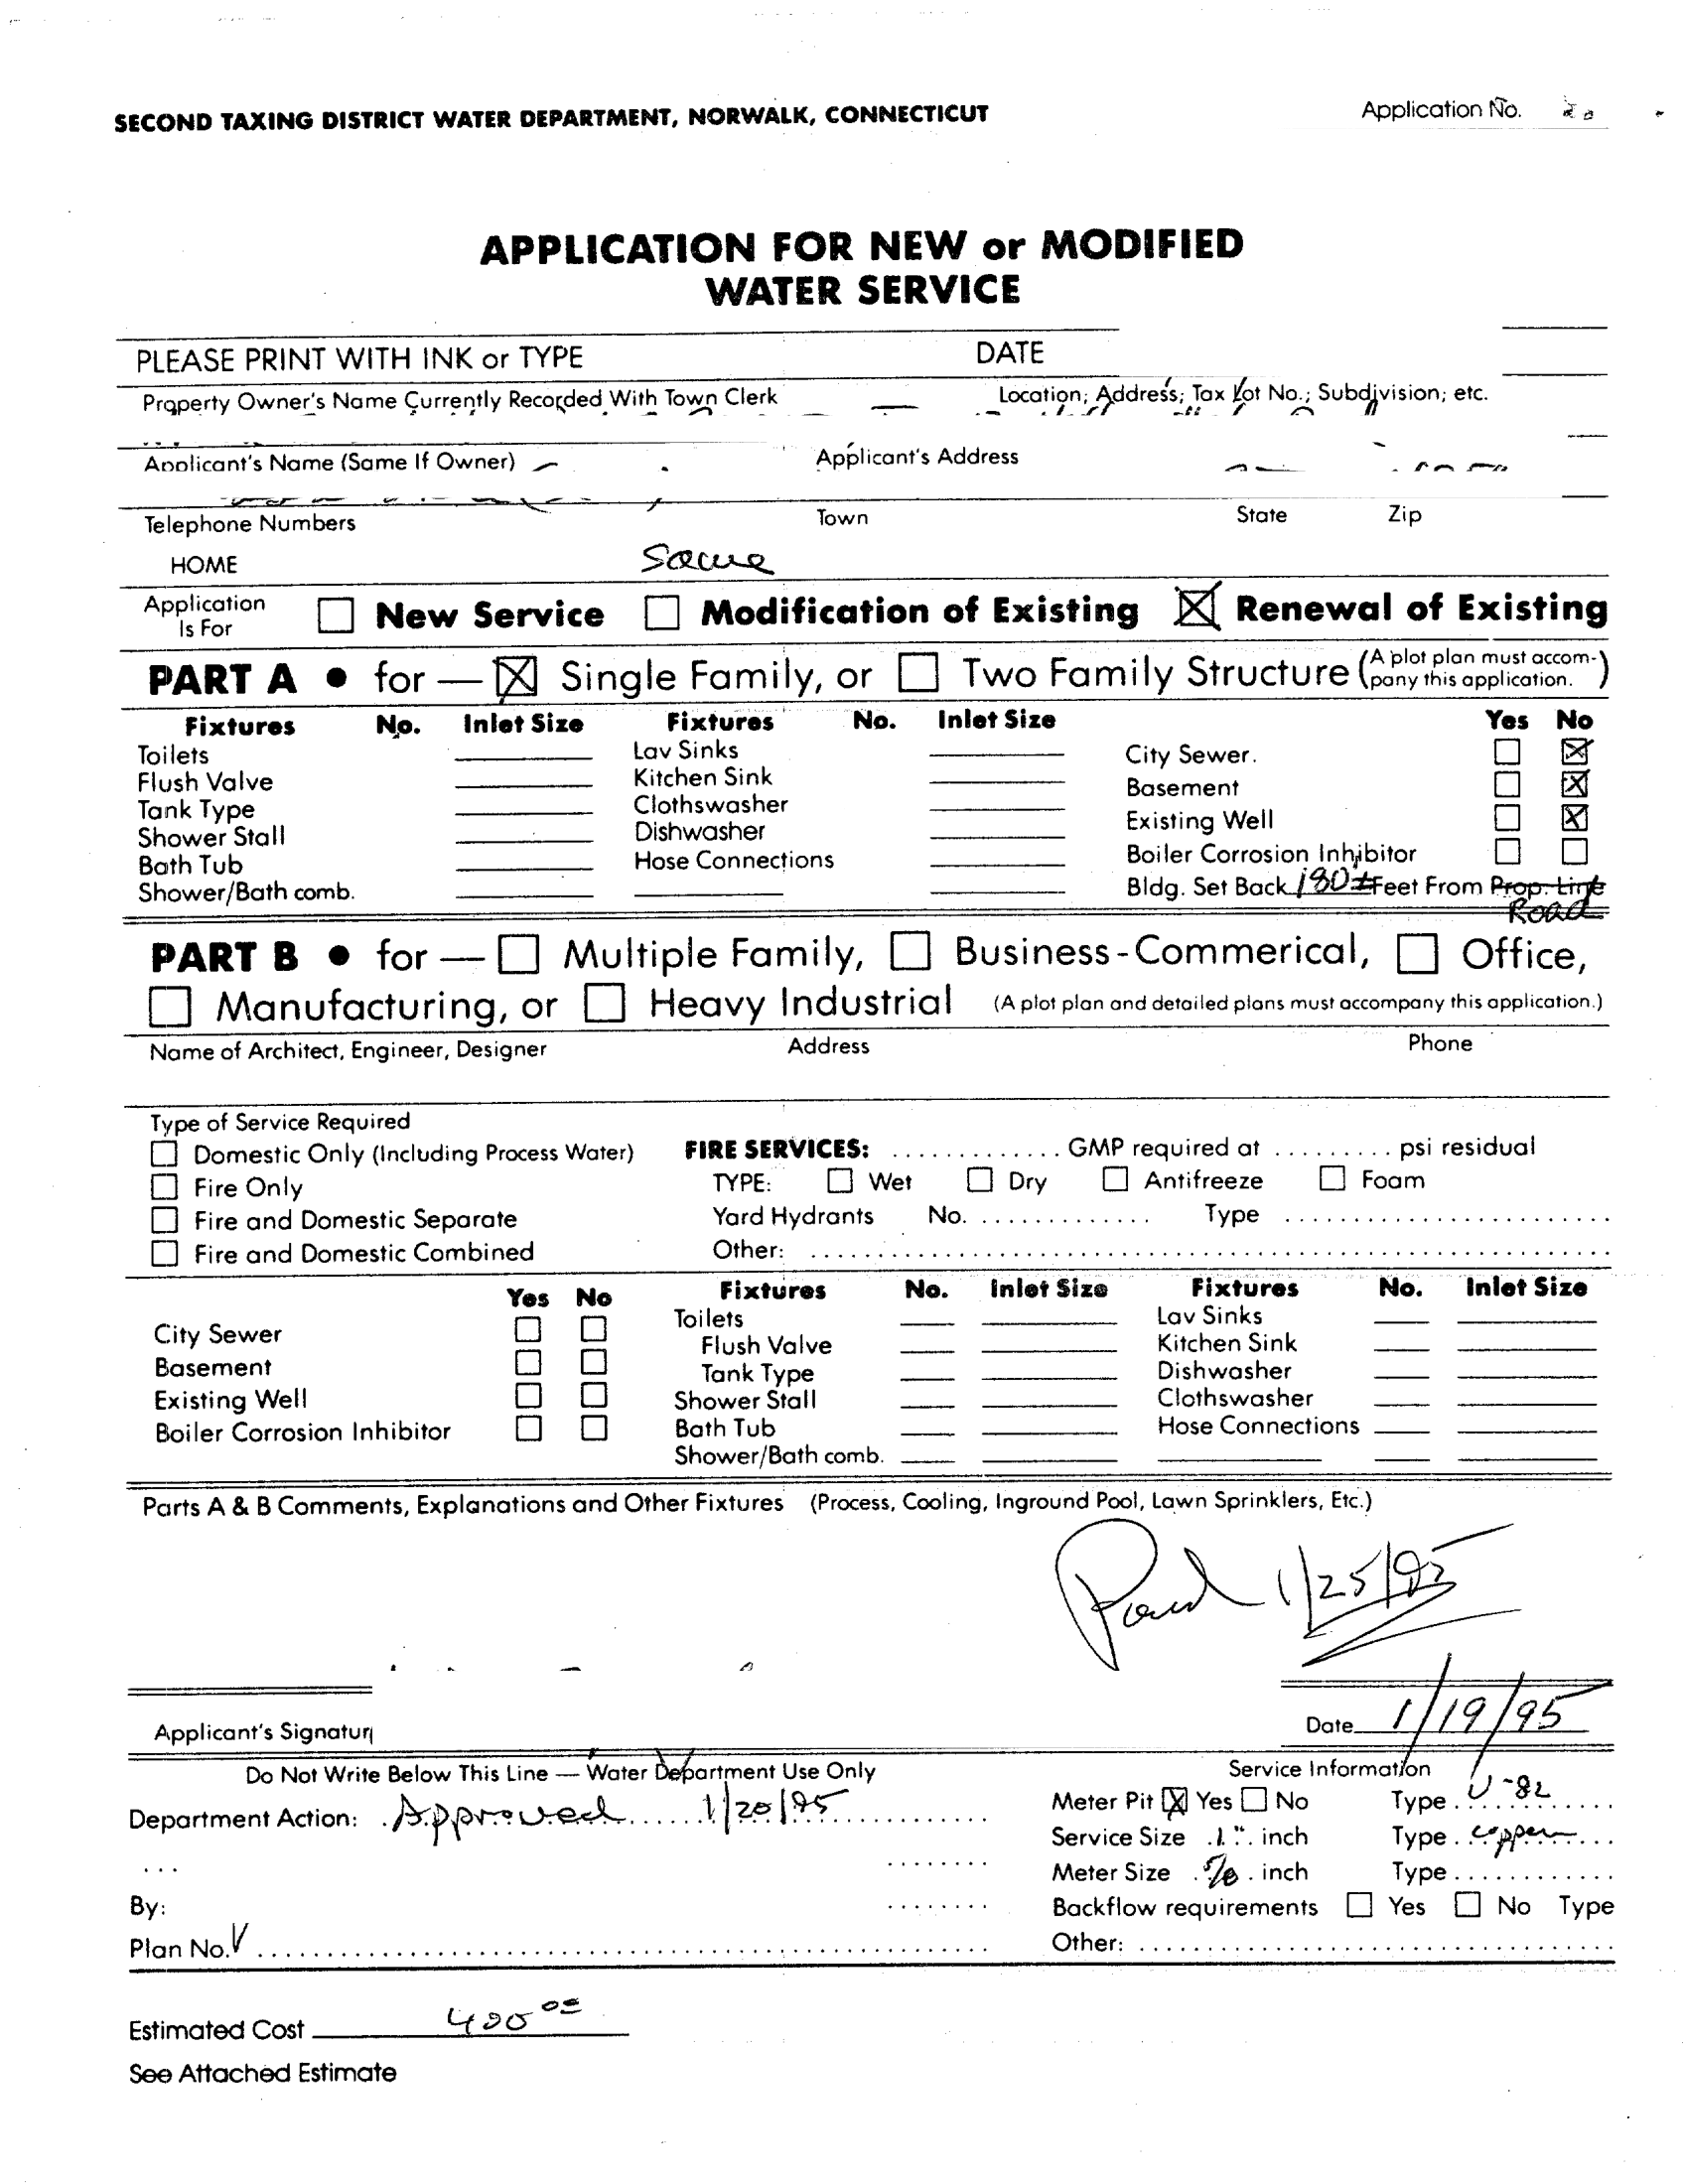 SECOND TAXING DISTRICT WATER DEPARTMENT, NORWALK, CONNECTICUT Application No.
APPLICATION FOR NEW or MODIFIED
WATER SERVICE
PLEASE PRINT WITH INK or TYPE DATE
Property Owner's Name Currently Recorded With Town Clerk Location; Address; Tax Lot No.; Subdivision; etc.
Applicant's Name (Same If Owner) Applicant's Address
Telephone Numbers Town State Zip
HOME Same
Application Is For ☐ New Service ☐ Modification of Existing ☒ Renewal of Existing
PART A • for — ☒ Single Family, or ☐ Two Family Structure (A plot plan must accom-
pany this application.)
Fixtures No. Inlet Size Fixtures No. Inlet Size Yes No
Toilets Lav Sinks City Sewer. ☐ ☒
Flush Valve Kitchen Sink Basement ☐ ☒
Tank Type Clothswasher Existing Well ☐ ☒
Shower Stall Dishwasher Boiler Corrosion Inhibitor ☐ ☐
Bath Tub Hose Connections Bldg. Set Back 180± Feet From Prop. Line
Shower/Bath comb. Road
PART B • for — ☐ Multiple Family, ☐ Business-Commerical, ☐ Office,
☐ Manufacturing, or ☐ Heavy Industrial (A plot plan and detailed plans must accompany this application.)
Name of Architect, Engineer, Designer Address Phone
Type of Service Required
☐ Domestic Only (Including Process Water) FIRE SERVICES: ............. GMP required at ......... psi residual
☐ Fire Only TYPE: ☐ Wet ☐ Dry ☐ Antifreeze ☐ Foam
☐ Fire and Domestic Separate Yard Hydrants No. ............. Type .........................
☐ Fire and Domestic Combined Other: .............................................................
Yes No Fixtures No. Inlet Size Fixtures No. Inlet Size
City Sewer ☐ ☐ Toilets Lav Sinks
Basement ☐ ☐ Flush Valve Kitchen Sink
Existing Well ☐ ☐ Tank Type Dishwasher
Boiler Corrosion Inhibitor ☐ ☐ Shower Stall Clothswasher
Bath Tub Hose Connections
Shower/Bath comb.
Parts A & B Comments, Explanations and Other Fixtures (Process, Cooling, Inground Pool, Lawn Sprinklers, Etc.)
Paid 1/25/95
Applicant's Signatur Date 1/19/95
Do Not Write Below This Line — Water Department Use Only Service Information
Department Action: Approved 1/20/95 Meter Pit ☒ Yes ☐ No Type U-82
Service Size 1" inch Type copper
Meter Size 5/8 inch Type
By: Backflow requirements ☐ Yes ☐ No Type
Plan No. Other:
Estimated Cost 400 00
See Attached Estimate